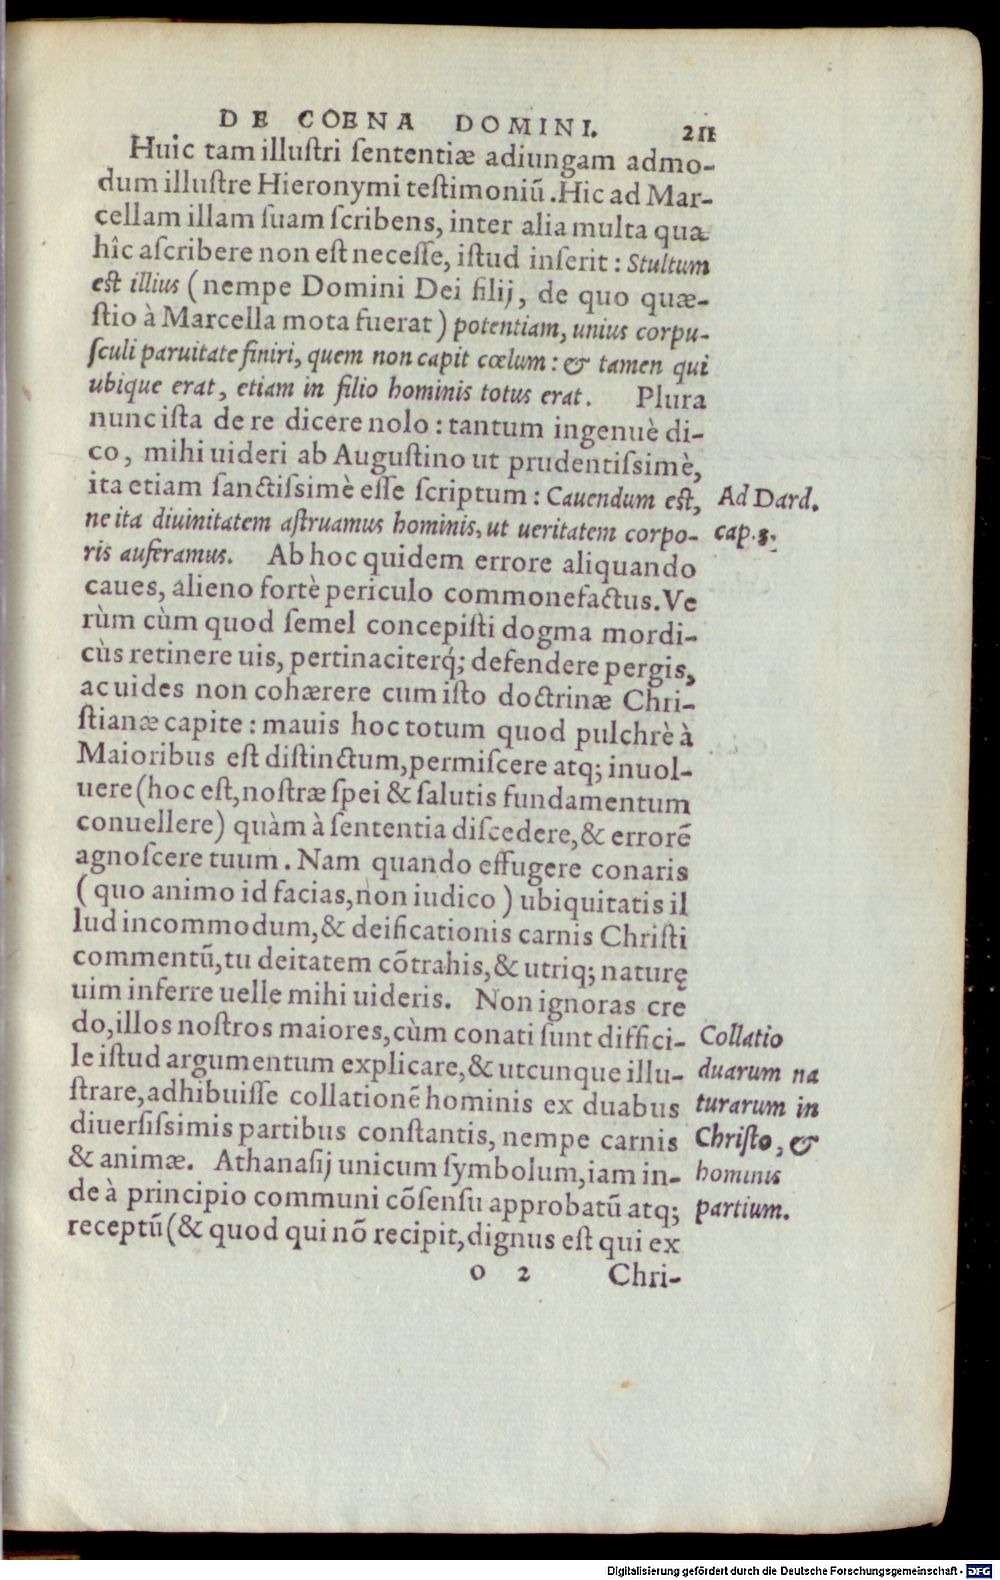 DE COENA DOMINI. 211
Huic tam illuſtri ſententiæ adiungam admo-
dum illuſtre Hieronymi teſtimoniũ. Hic ad Mar-
cellam illam ſuam ſcribens, inter alia multa quæ
hîc aſcribere non eſt neceſſe, iſtud inſerit: Stultum
eſt illius (nempe Domini Dei filij, de quo quæ-
ſtio à Marcella mota fuerat) potentiam, unius corpu-
ſculi paruitate finiri, quem non capit cœlum: & tamen qui
ubique erat, etiam in filio hominis totus erat. Plura
nunc iſta de re dicere nolo: tantum ingenuè di-
co, mihi uideri ab Auguſtino ut prudentiſsimè,
ita etiam ſanctiſsimè eſſe ſcriptum: Cauendum eſt,
ne ita diuinitatem aſtruamus hominis, ut ueritatem corpo-
ris auferamus. Ab hoc quidem errore aliquando
caues, alieno fortè periculo commonefactus. Ve
rùm cùm quod ſemel concepiſti dogma mordi-
cùs retinere uis, pertinaciterq́; defendere pergis,
ac uides non cohærere cum iſto doctrinæ Chri-
ſtianæ capite: mauis hoc totum quod pulchrè à
Maioribus eſt diſtinctum, permiſcere atq; inuol-
uere (hoc eſt, noſtræ ſpei & ſalutis fundamentum
conuellere) quàm à ſententia diſcedere, & errorẽ
agnoſcere tuum. Nam quando effugere conaris
(quo animo id facias, non iudico) ubiquitatis il
lud incommodum, & deificationis carnis Chriſti
commentũ, tu deitatem cõtrahis, & utriq; naturę
uim inferre uelle mihi uideris. Non ignoras cre
do, illos noſtros maiores, cùm conati ſunt diffici-
le iſtud argumentum explicare, & utcunque illu-
ſtrare, adhibuiſſe collationẽ hominis ex duabus
diuerſiſsimis partibus conſtantis, nempe carnis
& animæ. Athanaſij unicum ſymbolum, iam in-
de à principio communi cõſenſu approbatũ atq;
receptũ (& quod qui nõ recipit, dignus eſt qui ex
o 2 Chri-
Ad Dard.
cap. 3.
Collatio
duarum na
turarum in
Chriſto, &
hominis
partium.
Digitalisierung gefördert durch die Deutsche Forschungsgemeinschaft - DFG